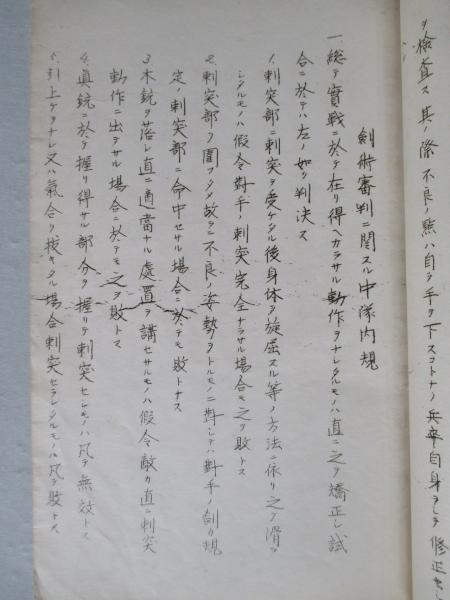 ヲ檢査ス其ノ際不良ノ點ハ自ラ手ヲ下スコトナク兵卒自身ヲシテ修正セシ
劍術審判ニ関スル中隊内規
一、総テ實戰ニ於テ在リ得ヘカラサル動作ヲナシタルモノハ直ニ之ヲ矯正シ試
合ニ於テハ左ノ如ク判決ス
1、刺突部ニ刺突ヲ受ケタル後身体ヲ旋屈スル等ノ方法ニ依リ之ヲ滑ラ
シタルモノハ假令對手ノ刺突完全ナラサル場合モ之ヲ敗トス
2、刺突部ヲ閉フメ故ラニ不良ノ姿勢ヲトルモノニ對シテハ對手ノ劍カ規
定ノ刺突部ニ命中セサル場合ニ於テモ敗トナス
3、木銃ヲ落シ直ニ適當ナル處置ヲ講セサルモノハ假令敵カ直ニ刺突
動作ニ出テサル場合ニ於テモ之ヲ敗トス
4、眞銃ニ於テ握リ得サル部分ヲ握リテ刺突セシモノハ凡テ無效トス
5、引上ケヲナシ又ハ氣合ヲ拔キタル場合刺突セラレタルモノハ凡テ敗トス